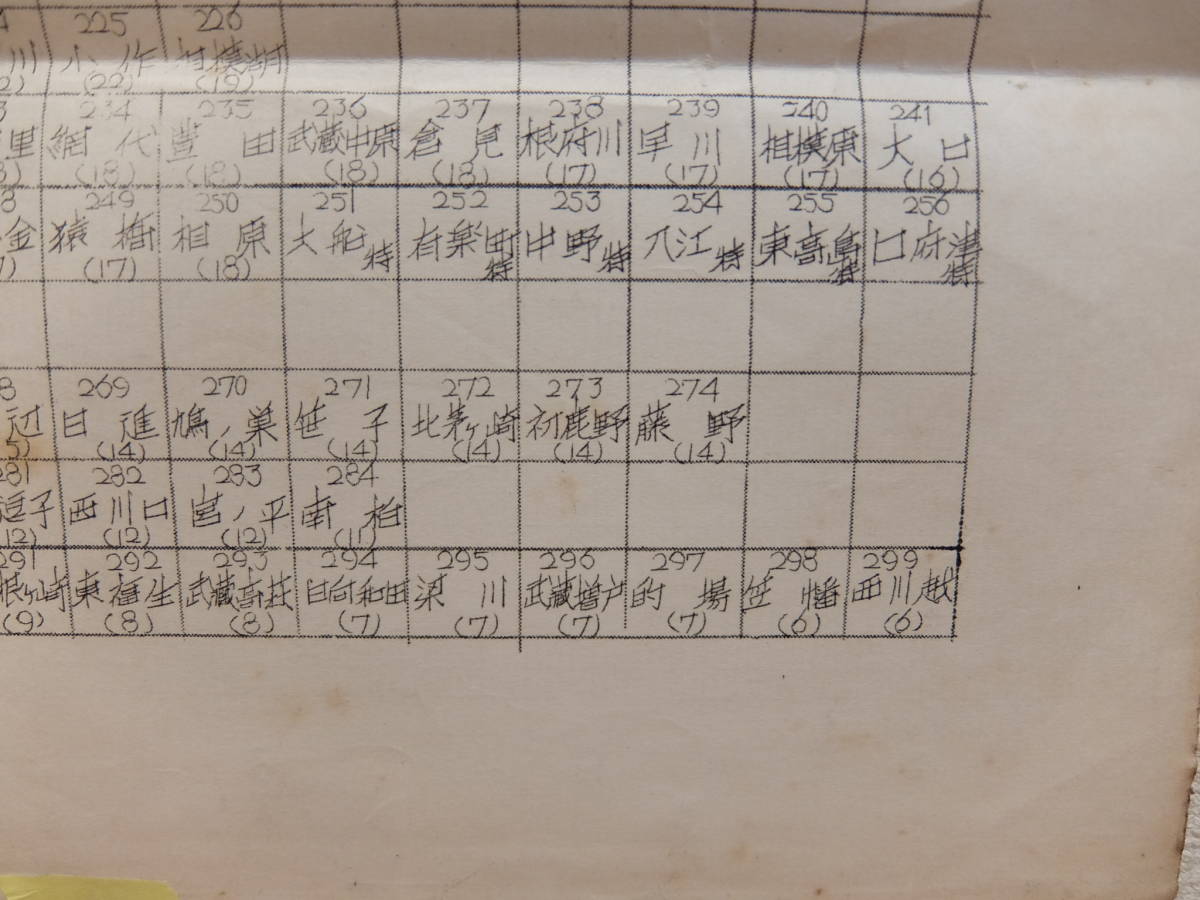 4 225 226
川 小作 相模湖
2) (22) (19)
3 234 235 236 237 238 239 240 241
里 網代 豊田 武蔵中原 倉見 根府川 早川 相模原 大口
(18) (18) (18) (18) (17) (17) (17) (16)
8 249 250 251 252 253 254 255 256
金 猿橋 相原 大船特 有楽町特 中野特 入江特 東高島特 口府津特
7) (17) (18)
8 269 270 271 272 273 274
辺 日進 鳩ノ巣 笹子 北茅ヶ崎 初鹿野 藤野
5) (14) (14) (14) (14) (14) (14)
281 282 283 284
逗子 西川口 宮ノ平 南柏
(12) (12) (12) (11)
291 292 293 294 295 296 297 298 299
根ヶ崎 東福生 武蔵高萩 日向和田 梁川 武蔵増戸 的場 笠幡 西川越
(9) (8) (8) (7) (7) (7) (7) (6) (6)